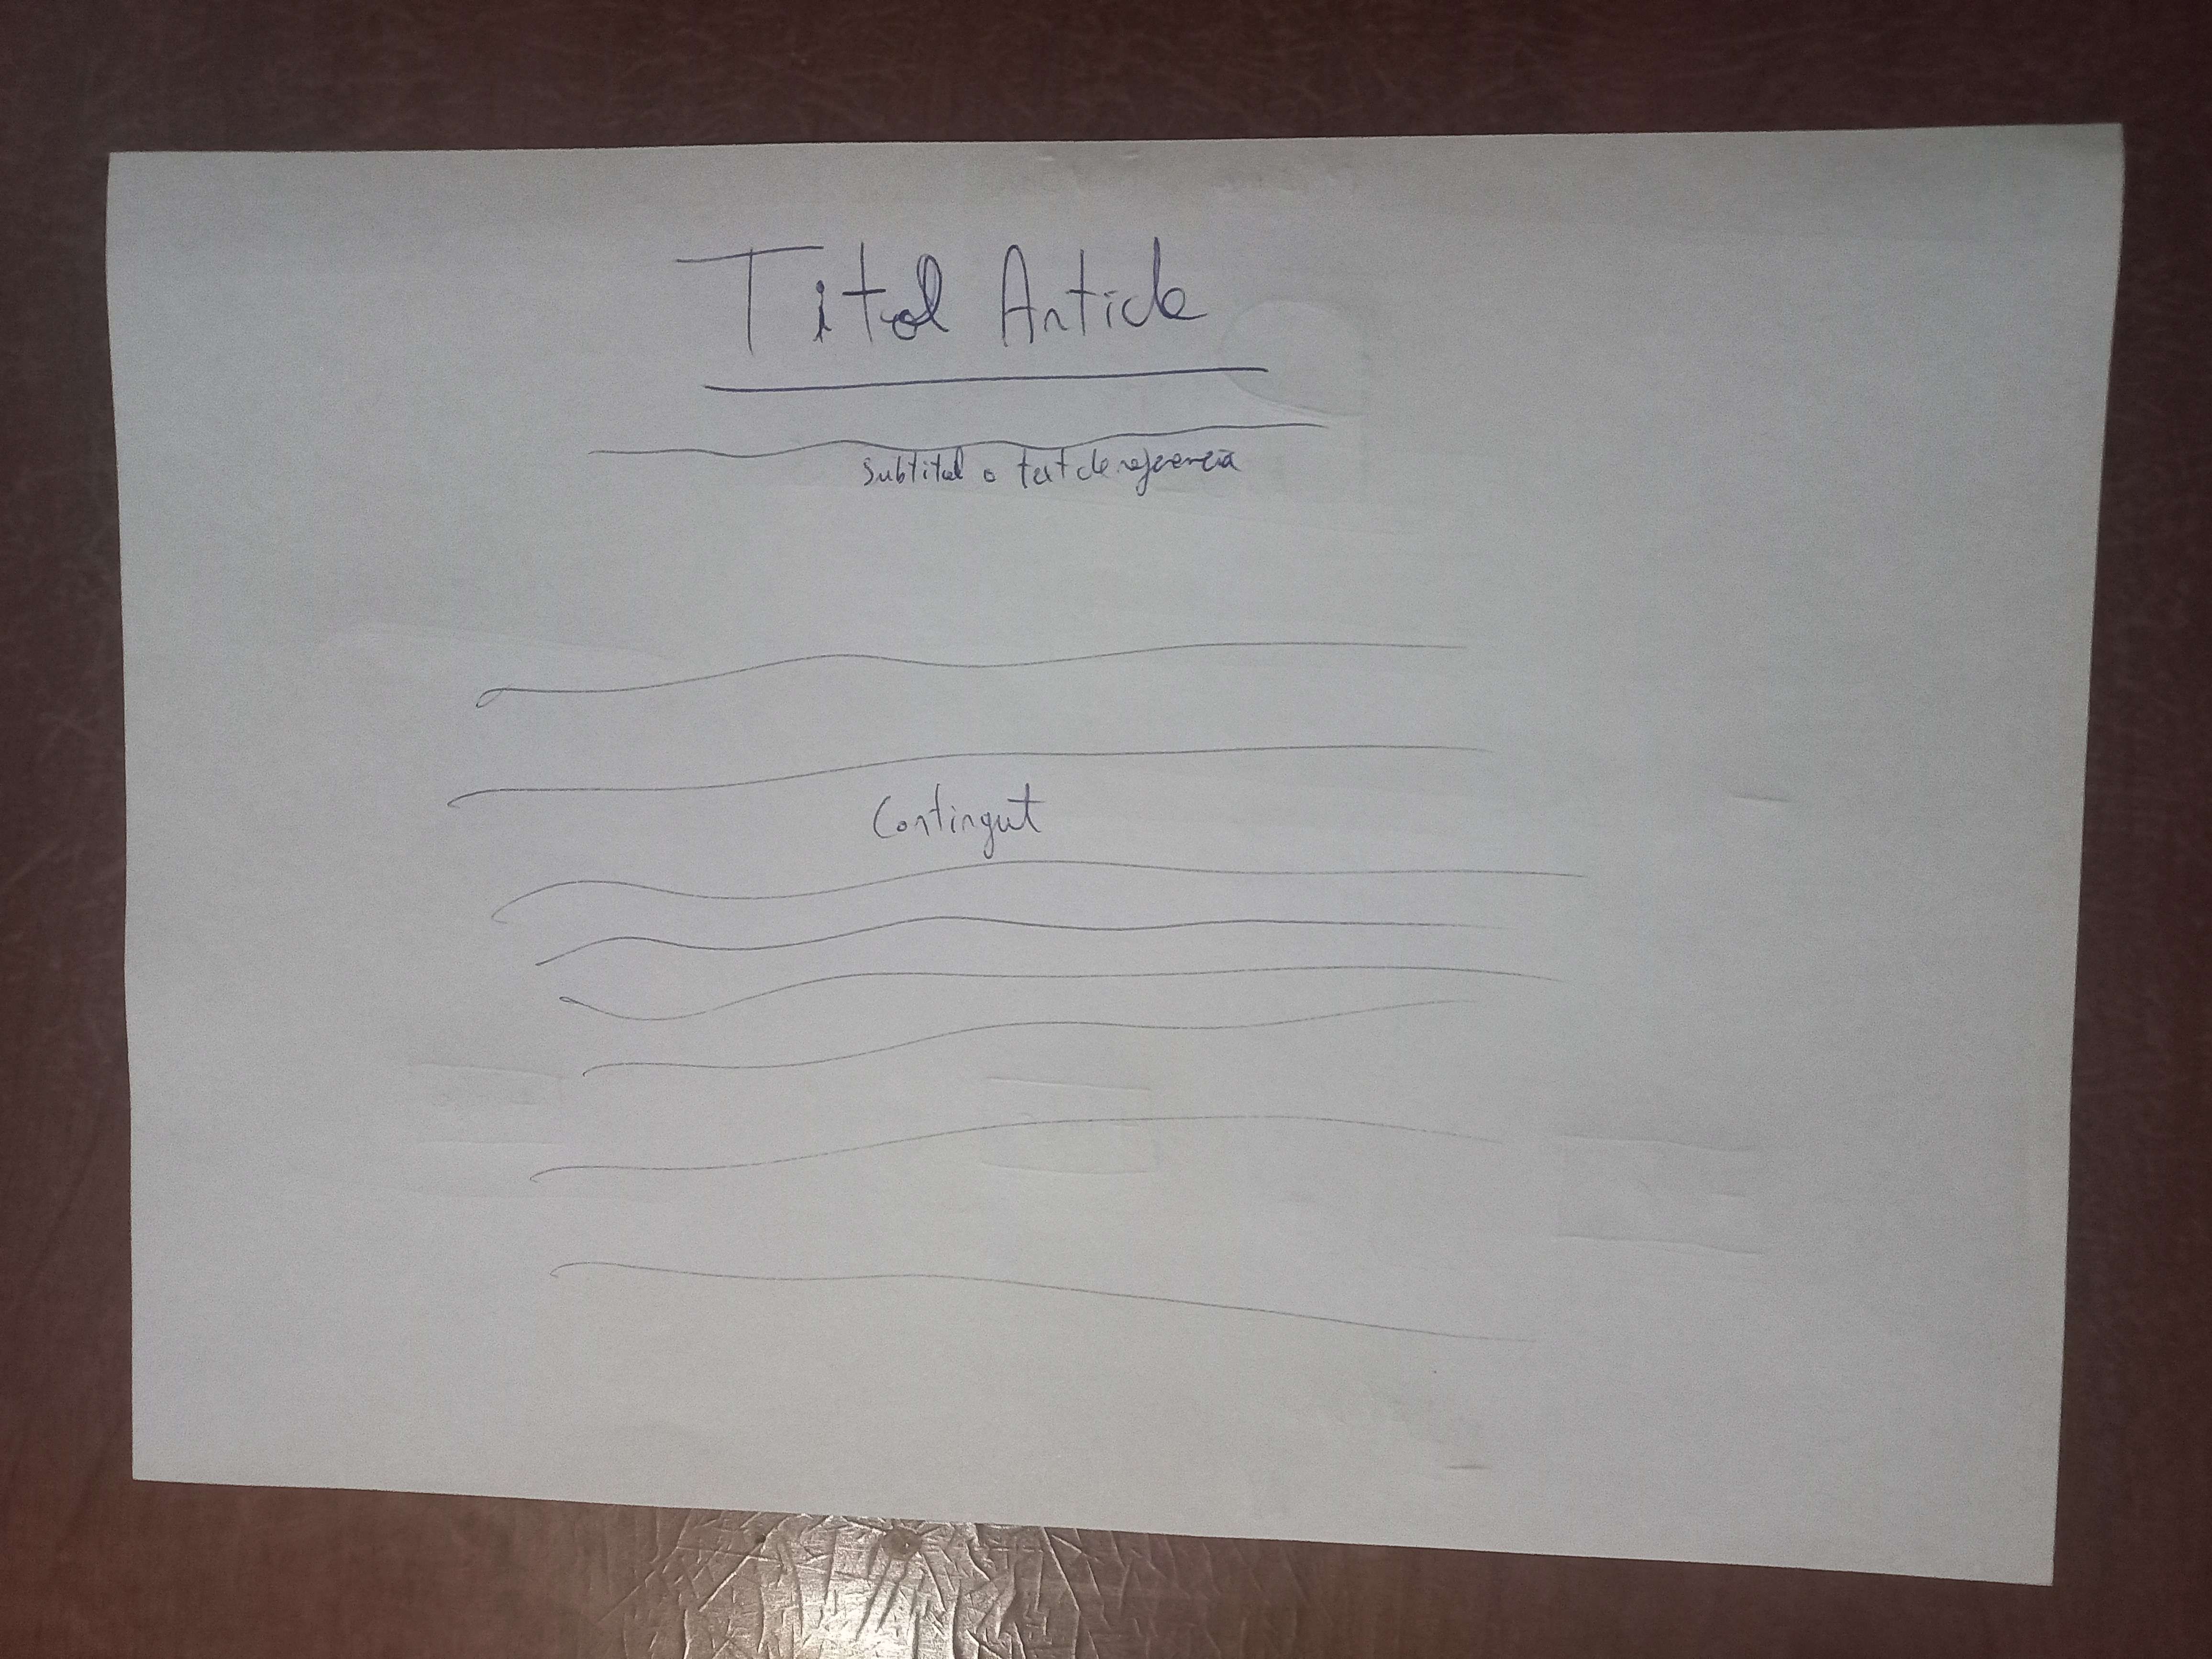 Titol Article
Subtitol o text de referencia
Contingut